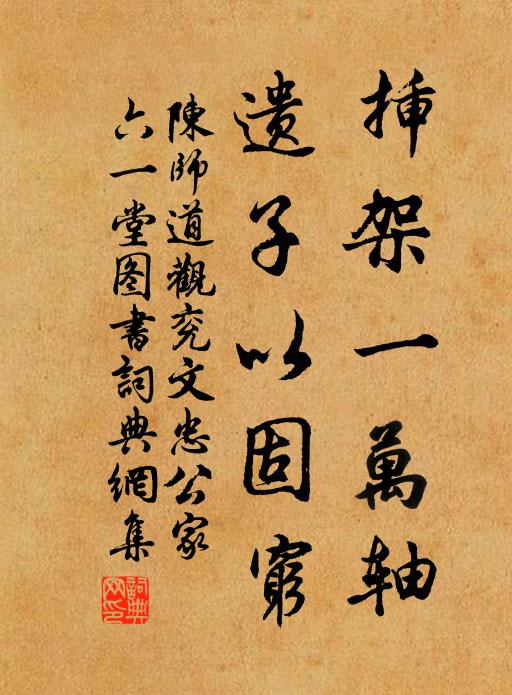 插架一萬軸
遺子以固窮
陳師道觀兗文忠公家
六一堂图書詞典網集
詞典网印